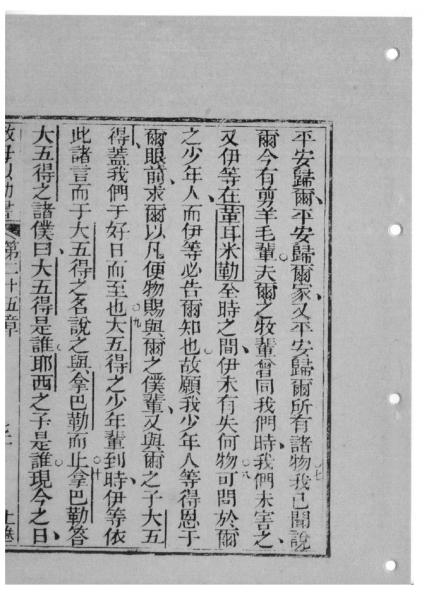 平安歸爾、平安歸爾家、又平安歸爾所有諸物○七我已聞說
爾今有剪羊毛輩、夫爾之牧輩曾同我們時、我們未害之、
又伊等在葷耳米勒至時之間、伊未有失何物○八可問於爾
之少年人、而伊等必告爾知也○故願我少年人等得恩于
爾眼前、求爾以凡便物賜與爾之僕輩、又與爾之子大五
得、蓋我們于好日而至也○九大五得之少年輩到、時伊等依
此諸言而于大五得之名說之與拿巴勒而止○十拿巴勒答
大五得之諸僕曰、大五得是誰、耶西之子是誰、現今之日、
第二十五章